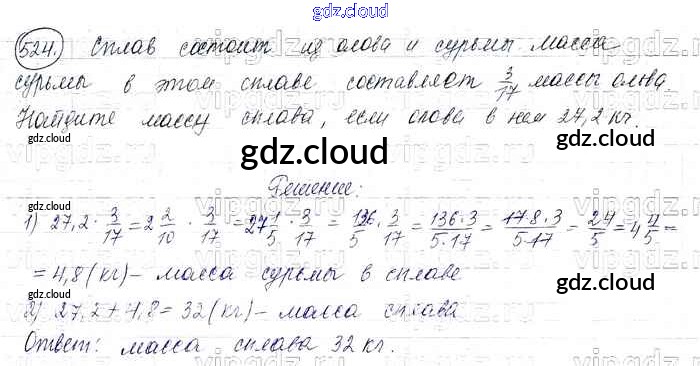 gdz.cloud
524. Сплав состоит из олова и сурьмы. Масса
сурьмы в этом сплаве составляет 3/17 массы олова.
Найдите массу сплава, если олова в нем 27,2 кг.
gdz.cloud gdz.cloud gdz.cloud
Решение:
1) 27,2 · 3/17 = 2 2/10 · 3/17 = 27 1/5 · 3/17 = 136/5 · 3/17 = 136·3/5·17 = 17·8·3/5·17 = 24/5 = 4 4/5 =
= 4,8 (кг) – масса сурьмы в сплаве
gdz.cloud gdz.cloud gdz.cloud
2) 27,2 + 4,8 = 32 (кг) – масса сплава
Ответ: масса сплава 32 кг.